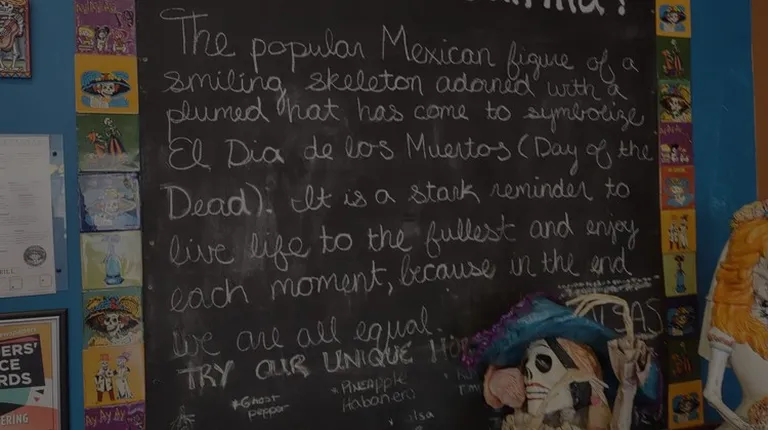 The popular Mexican figure of a
smiling skeleton adorned with a
plumed hat has come to symbolize
El Dia de los Muertos (Day of the
Dead). It is a stark reminder to
live life to the fullest and enjoy
each moment, because in the end
we are all equal.
TRY OUR UNIQUE
* Ghost
pepper
* Pineapple
Habanero